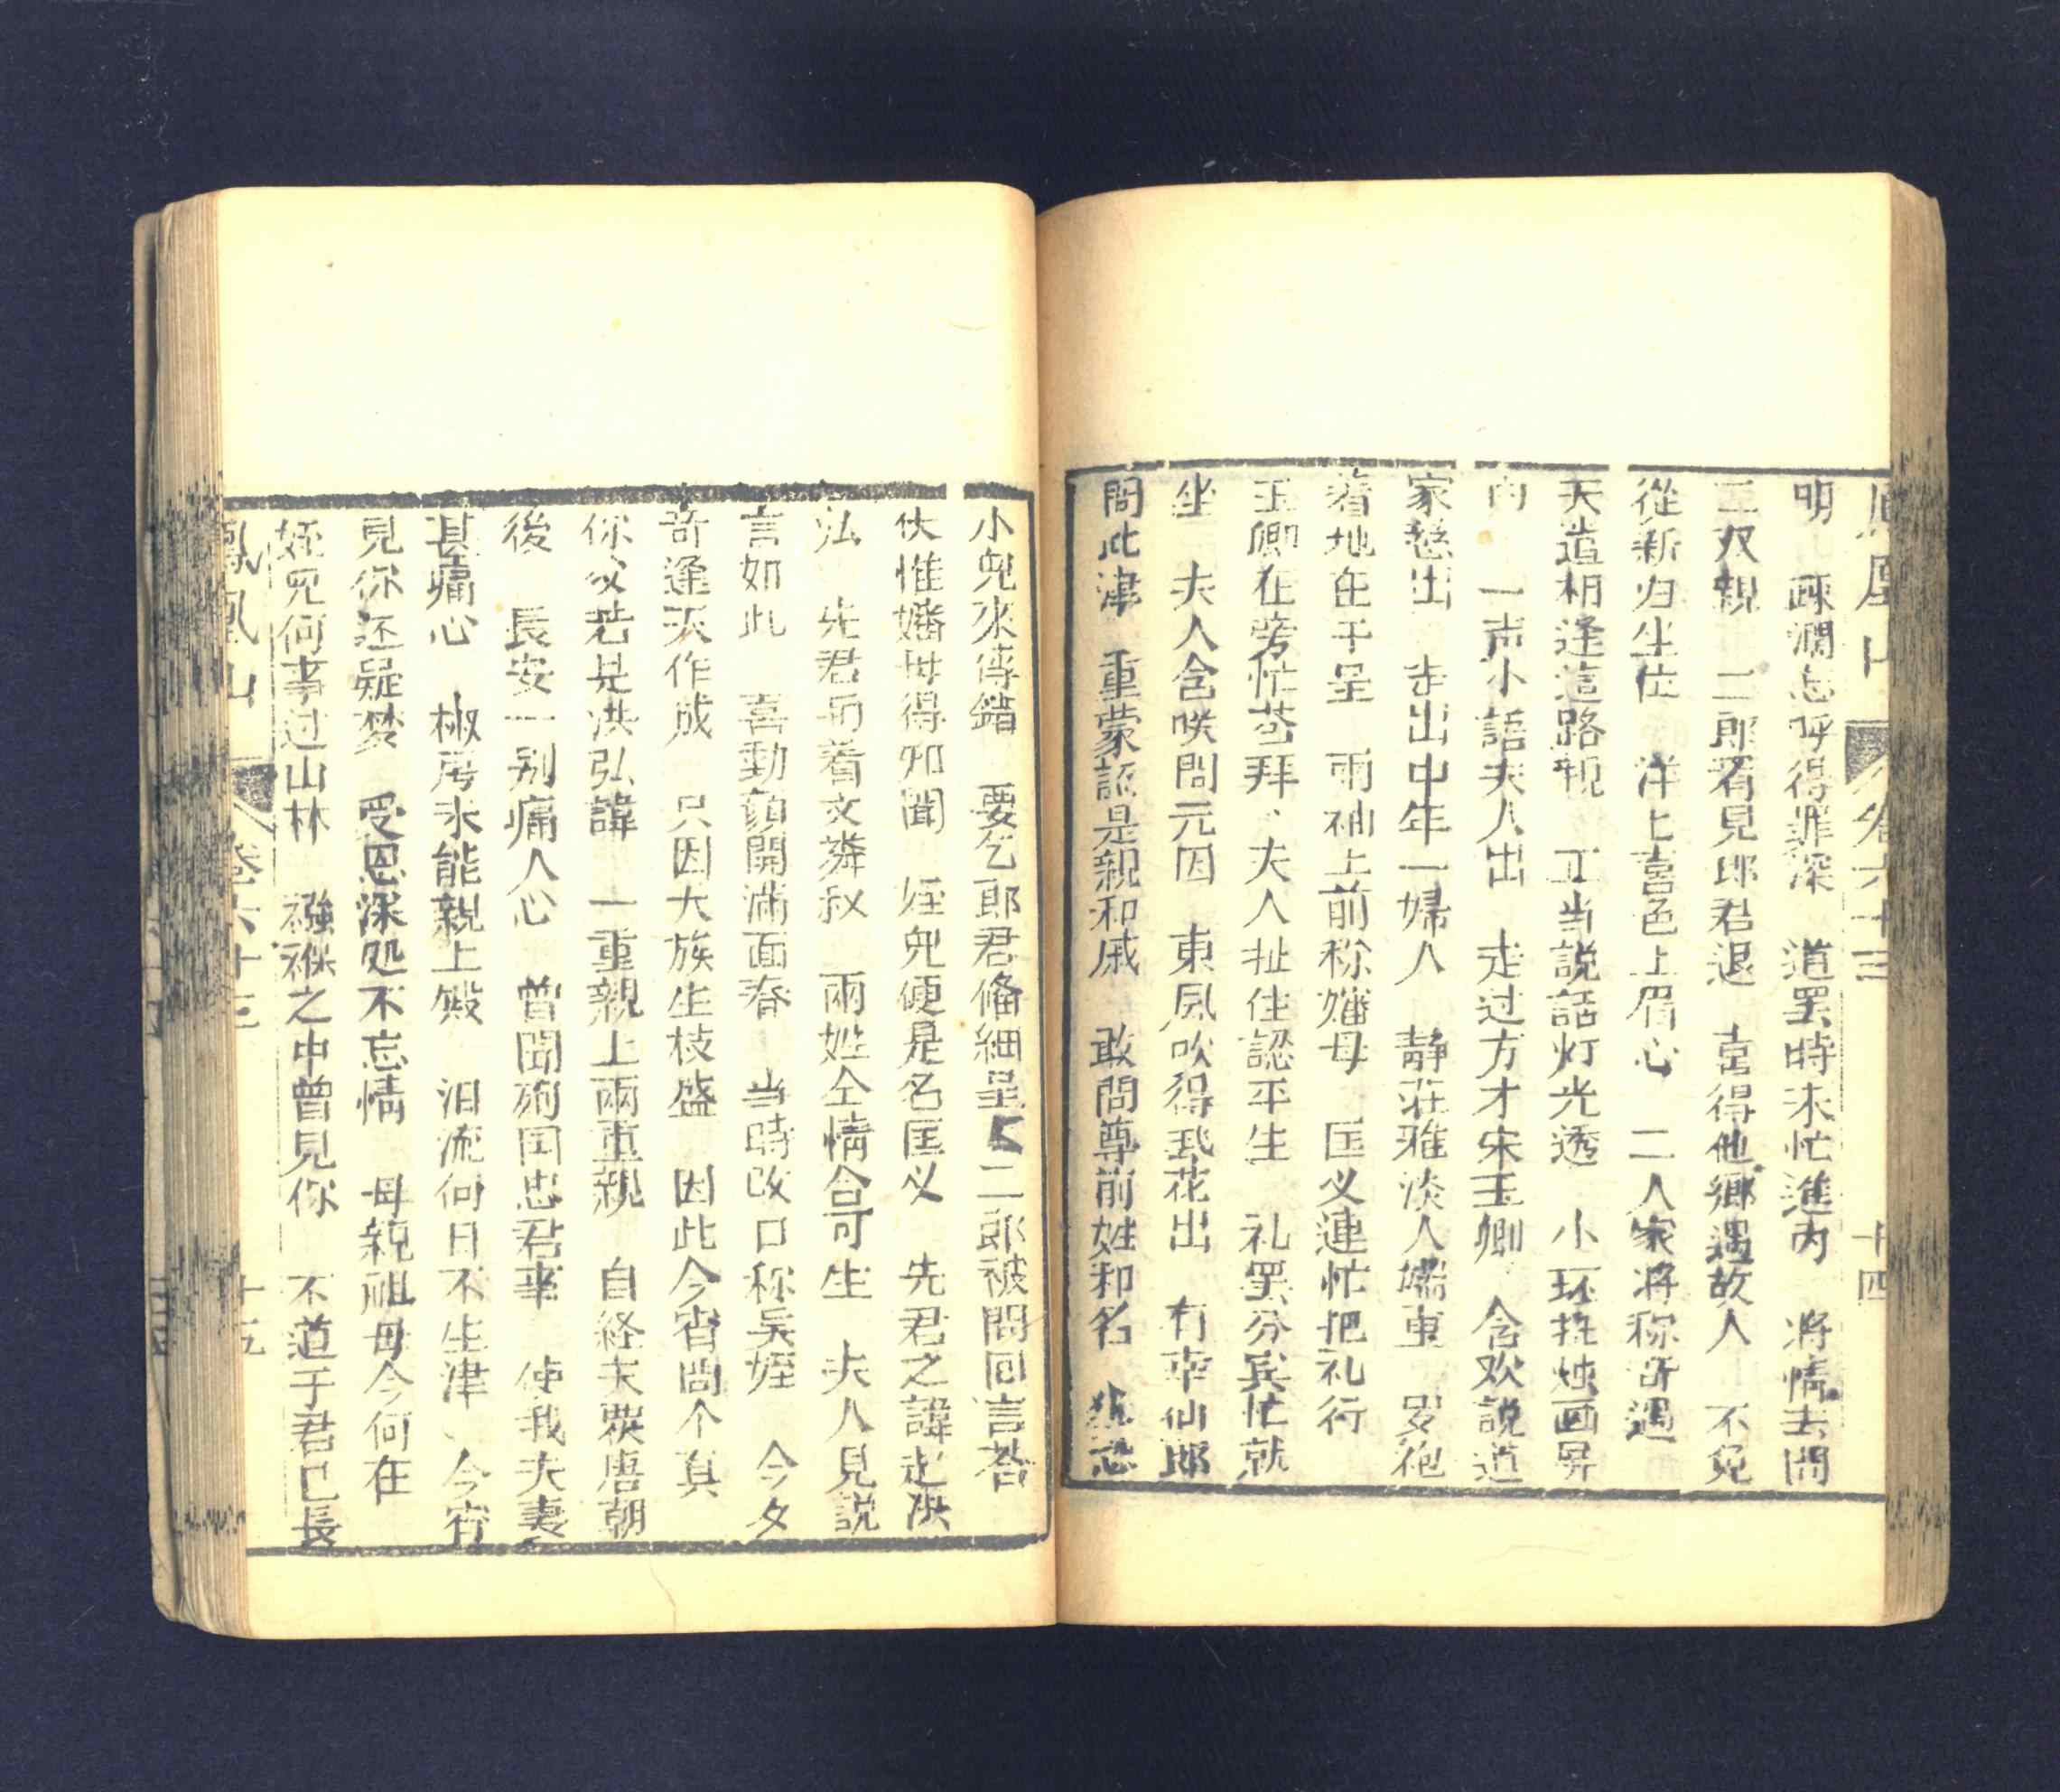 鳳凰山 卷六十三 十四
明 疎濶怎呼得罪深 道罢時未忙進内 将情去問
二双親 二郎看見郎君退 喜得他鄉遇故人 不免
從新归坐位 洋上喜色上眉心 二人家将称奇遇
天造相逢這路 正当説話灯光透 小环 烛画屏
内 一声小語夫人出 走过方才宋玉卿 含欢説道
家慈出 走出中年一婦人 静莊雅淡人端重 罗袍
着地 雨袖上前称嬸母 匡义連忙把礼行
玉卿在旁忙荅拜 夫人扯住認平生 礼罢分宾忙就
坐 夫人含咲問元因 東風吹得武花出 有幸仙郎
問此津 重蒙認是親和戚 敢問尊前姓和名 恐
小兒來傳錯 要乞郎君俻細呈 二郎被問回言荅
伏惟嬸母得知聞 姪兒便是名匡义 先君之諱趙洪
弘 先君 着文 叔 兩姓仝情合哥生 夫人見説
言如此 喜動顔開滿面春 当時改口称吴姪 今夕
奇逢天作成 只因大族生枝盛 因此今宵問个真
你父若是洪弘諱 一重親上兩重親 自経夫 唐朝
後 長安一别痛人心 曾聞殉囯忠君事 使我夫妻
甚痛心 椒房未能親上殿 泪流何日不生津 今宵
見你还疑梦 受恩深処不忘情 母親祖母今何在
姪兒何事过山林 襁褓之中曾見你 不道于君已長
鳳凰山 卷六十三 十五